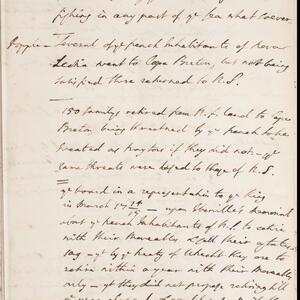 fishing in any part of ye sea whatsoever
people = Several of ye french Inhabitants of Nova
Scotia went to Cape Breton, but not being
satisfied there returned to N.S.
150 familys retired from N.f. land to Cape
Breton being threatned by ye french to be
treated as traytors if they did not - ye
same threats were used to those of N.S.
ye board in a representation to ye King
in March 17 - upon Memorial
about ye french Inhabitants of N.S. to retire
with their Moveables & sell their
say - by ye treaty of Utrecht they are to
retire within a year with their Moveables
only - ye they did not propose retiring till